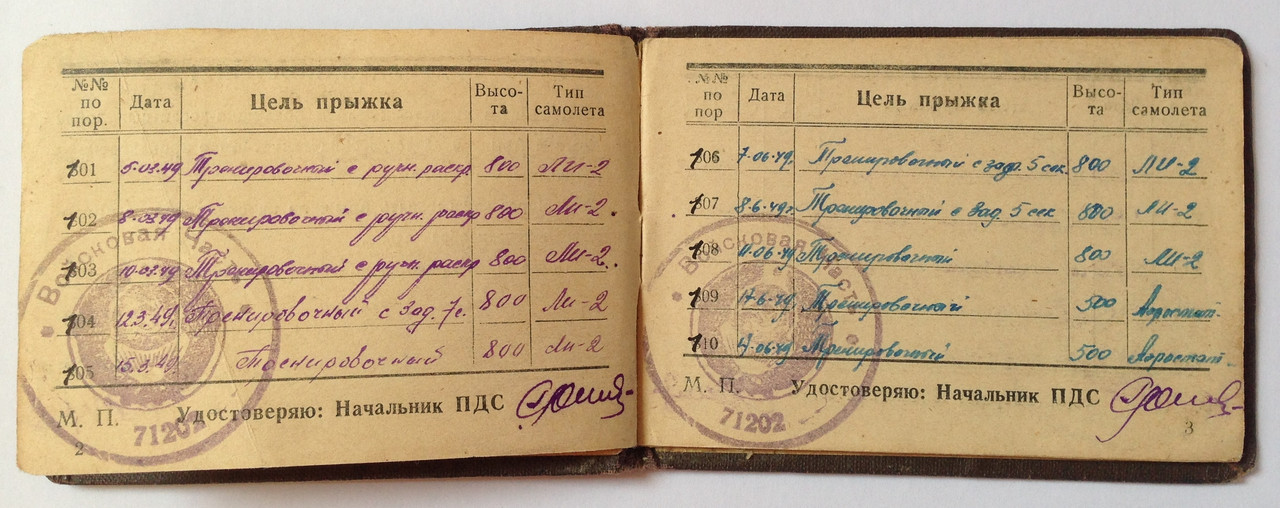 №№ по пор. Дата Цель прыжка Высо-та Тип самолета
101 5-03.49 Тренировочный с ручн. раскр. 800 Ли-2
102 8-03.49 Тренировочный с ручн. раскр 800 Ли-2.
103 10-03.49 Тренировочный с ручн. раскр 800 Ли-2.
104 12.3.49. Тренировочный с зад. 7 с. 800 Ли-2
105 15.3.49. Тренировочный 800 Ли-2
М. П. Удостоверяю: Начальник ПДС
Войсковая Часть
71202
2
№№ по пор Дата Цель прыжка Высо-та Тип самолета
106 7-06.49. Тренировочный с зад. 5 сек. 800 Ли-2
107 8-6.49г. Тренировочный с зад. 5 сек 800 Ли-2
108 11-06.49 Тренировочный 800 Ли-2
109 17-6.49 Тренировочный 500 Аэростат.
110 Тренировочный 500 Аэростат
М. П. Удостоверяю: Начальник ПДС
Войсковая Часть
71202
3